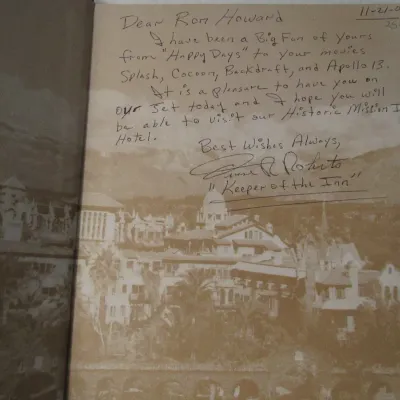 Dear Ron Howard
11-21-0
I have been a Big Fan of yours
from "Happy Days" to your movies
Splash, Cocoon, Backdraft, and Apollo 13.
It is a pleasure to have you on
our Jet today and I hope you will
be able to visit our Historic Mission I
Hotel.
Best Wishes Always,
Duane R. Roberts
"Keeper of the Inn"